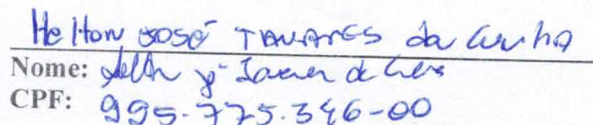 Helton José Tavares da Cunha
Nome:
CPF: 995.775.346-00